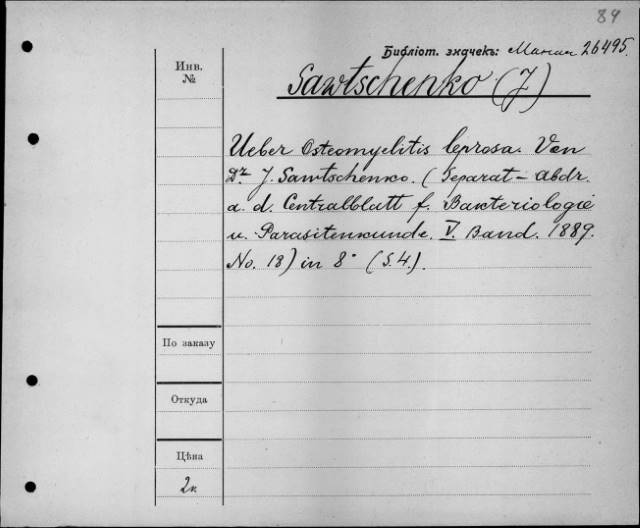 84
Библіот. значекъ: Магаз 26495.
Инв.
№
Sawtschenko (J)
Ueber Osteomyelitis leprosa. Von
Dr J. Sawtschenko. (Separat-Abdr.
a. d. Centralblatt f. Bakteriologie
u. Parasitenkunde. V. Band. 1889.
No. 18) in 8° (S. 4).
По заказу
Откуда
Цѣна
2к